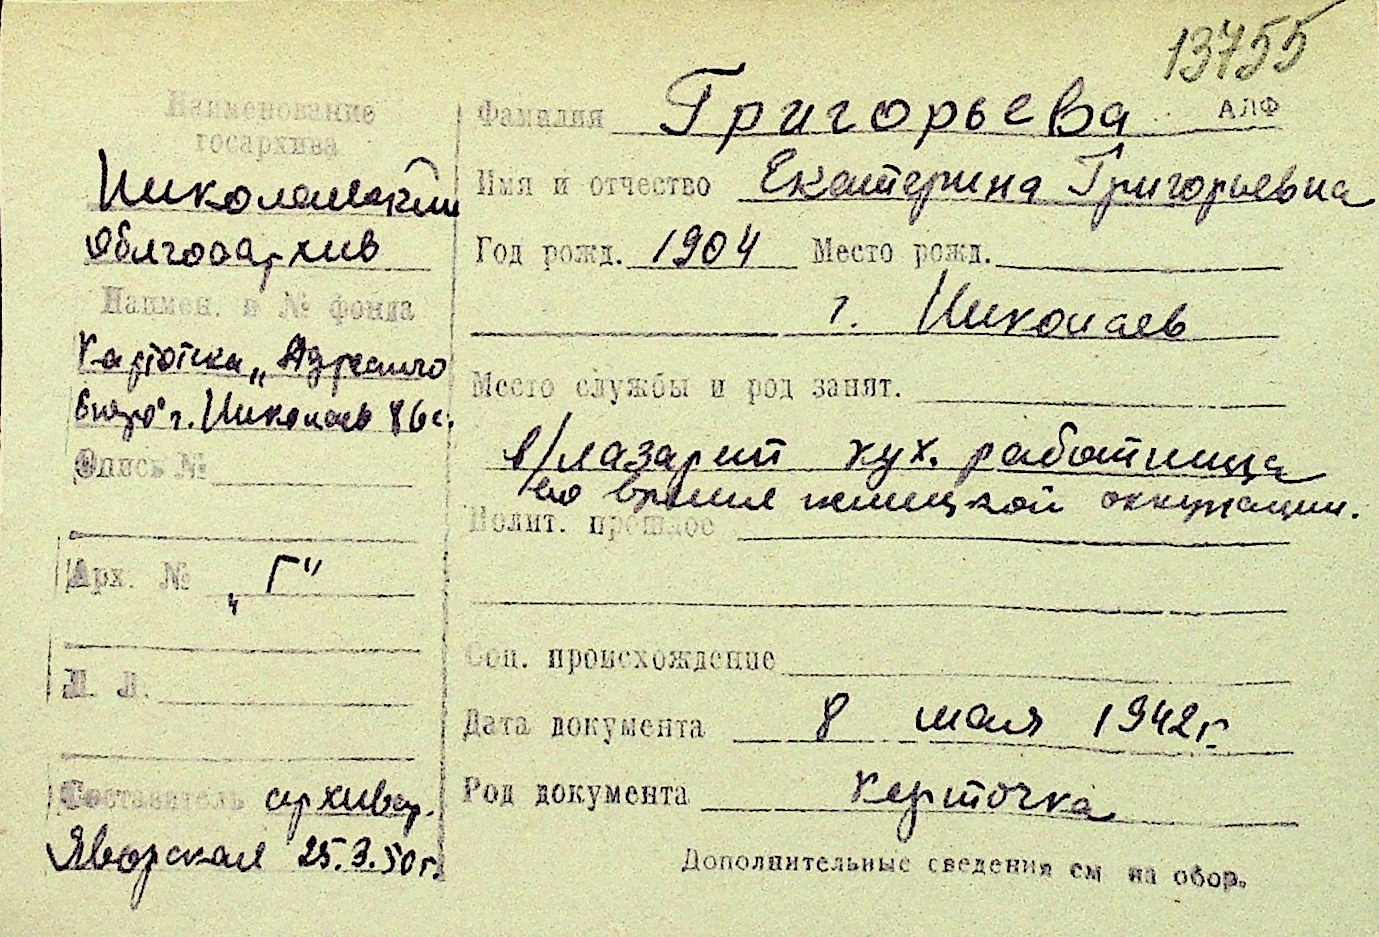 13755
АЛФ
Наименование
госархива
Николаевский
облгосархив
Наимен. и № фонда
Картотка „Адресного
бюро" г. Николаев
Опись №
Арх. № „Г"
Л. Л.
Составитель архивар.
Яворская 25.3.50г.
Фамилия Григорьева
Имя и отчество Екатерина Григорьевна
Год рожд. 1904 Место рожд.
г. Николаев
Место службы и род занят.
в/лазарет кух. работница
во время немецкой оккупации.
Полит. прошлое
Соц. происхождение
Дата документа 8 мая 1942г.
Род документа карточка
Дополнительные сведения см на обор.